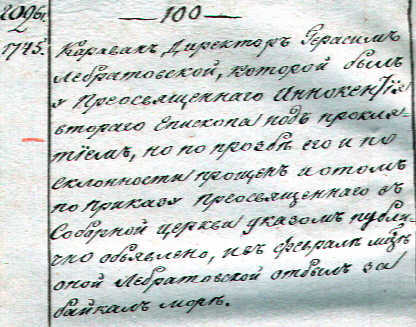 —100—
1745.
Караванъ, Директоръ Герасимъ
Лебратовской, которой былъ
у Преосвященнаго Иннокентія
втораго Епископа подъ прокля-
тіемъ, но по прозбѣ его и по
склонности прощенъ и отомъ
по приказу преосвященнаго въ
Соборной церкви указомъ публи-
чно объявлено, и въ февралѣ мцѣ
оной Лебратовской отбылъ за
байкалъ море.